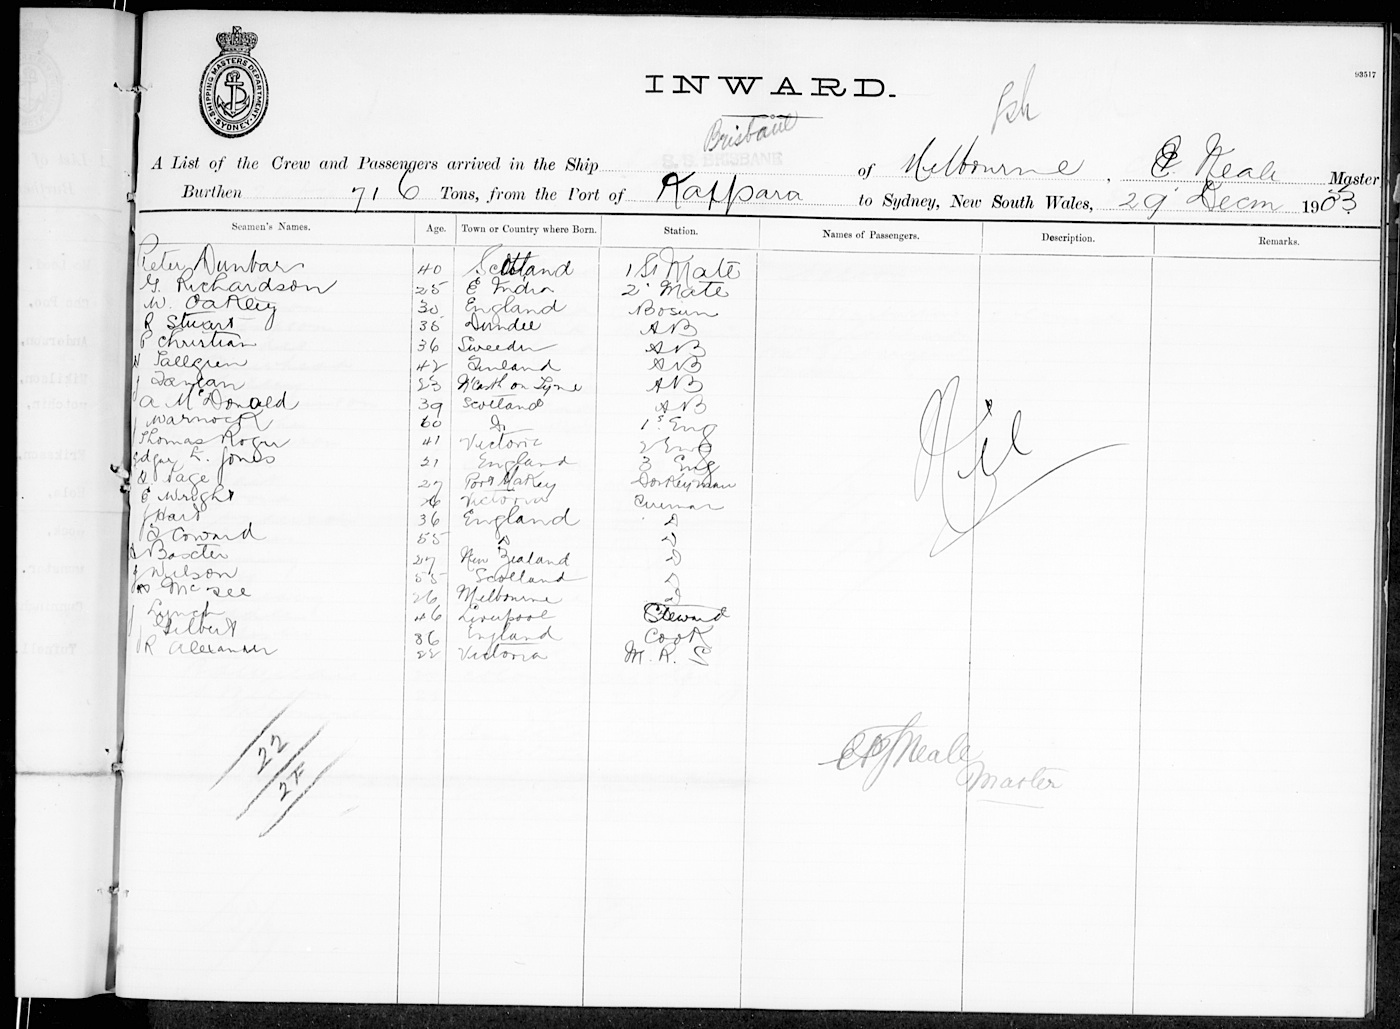 SHIPPING MASTERS DEPARTMENT
SYDNEY
93517
INWARD.
Brisbane
S. S. BRISBANE
A List of the Crew and Passengers arrived in the Ship of Melbourne, E Neale Master
Burthen 716 Tons, from the Port of Kaffara to Sydney, New South Wales, 29 Decm 1903
Seamen's Names. Age. Town or Country where Born. Station. Names of Passengers. Description. Remarks.
Peter Dunbar 40 Scotland 1st Mate
G. Richardson 25 E India 2 Mate
W. Oakley 30 England Bosun
R Stuart 36 Dundee AB
P Christian 36 Sweeden AB
Tallgren 42 Finland AB
J 23 N'Castl on Tyne AB
A McDonald 39 Scotland AB
J Warnock 60 Do 1st Eng
Thomas Roger 41 Victoria 2 Eng
Edgar L. Jones 21 England 3 Eng
Page 27 Port Makey Donkeyman
E Wright 26 Victoria Fireman
J Hart 36 England D
Coward 55 D D
Baxter 27 New Zealand D
J Wilson 55 Scotland D
McGee 26 Melbourne D
J Lynch 46 Liverpool Steward
Gilbert 36 England Cook
J R Alexander 22 Victoria M. R. S
Nil
22
27
Neale
Master